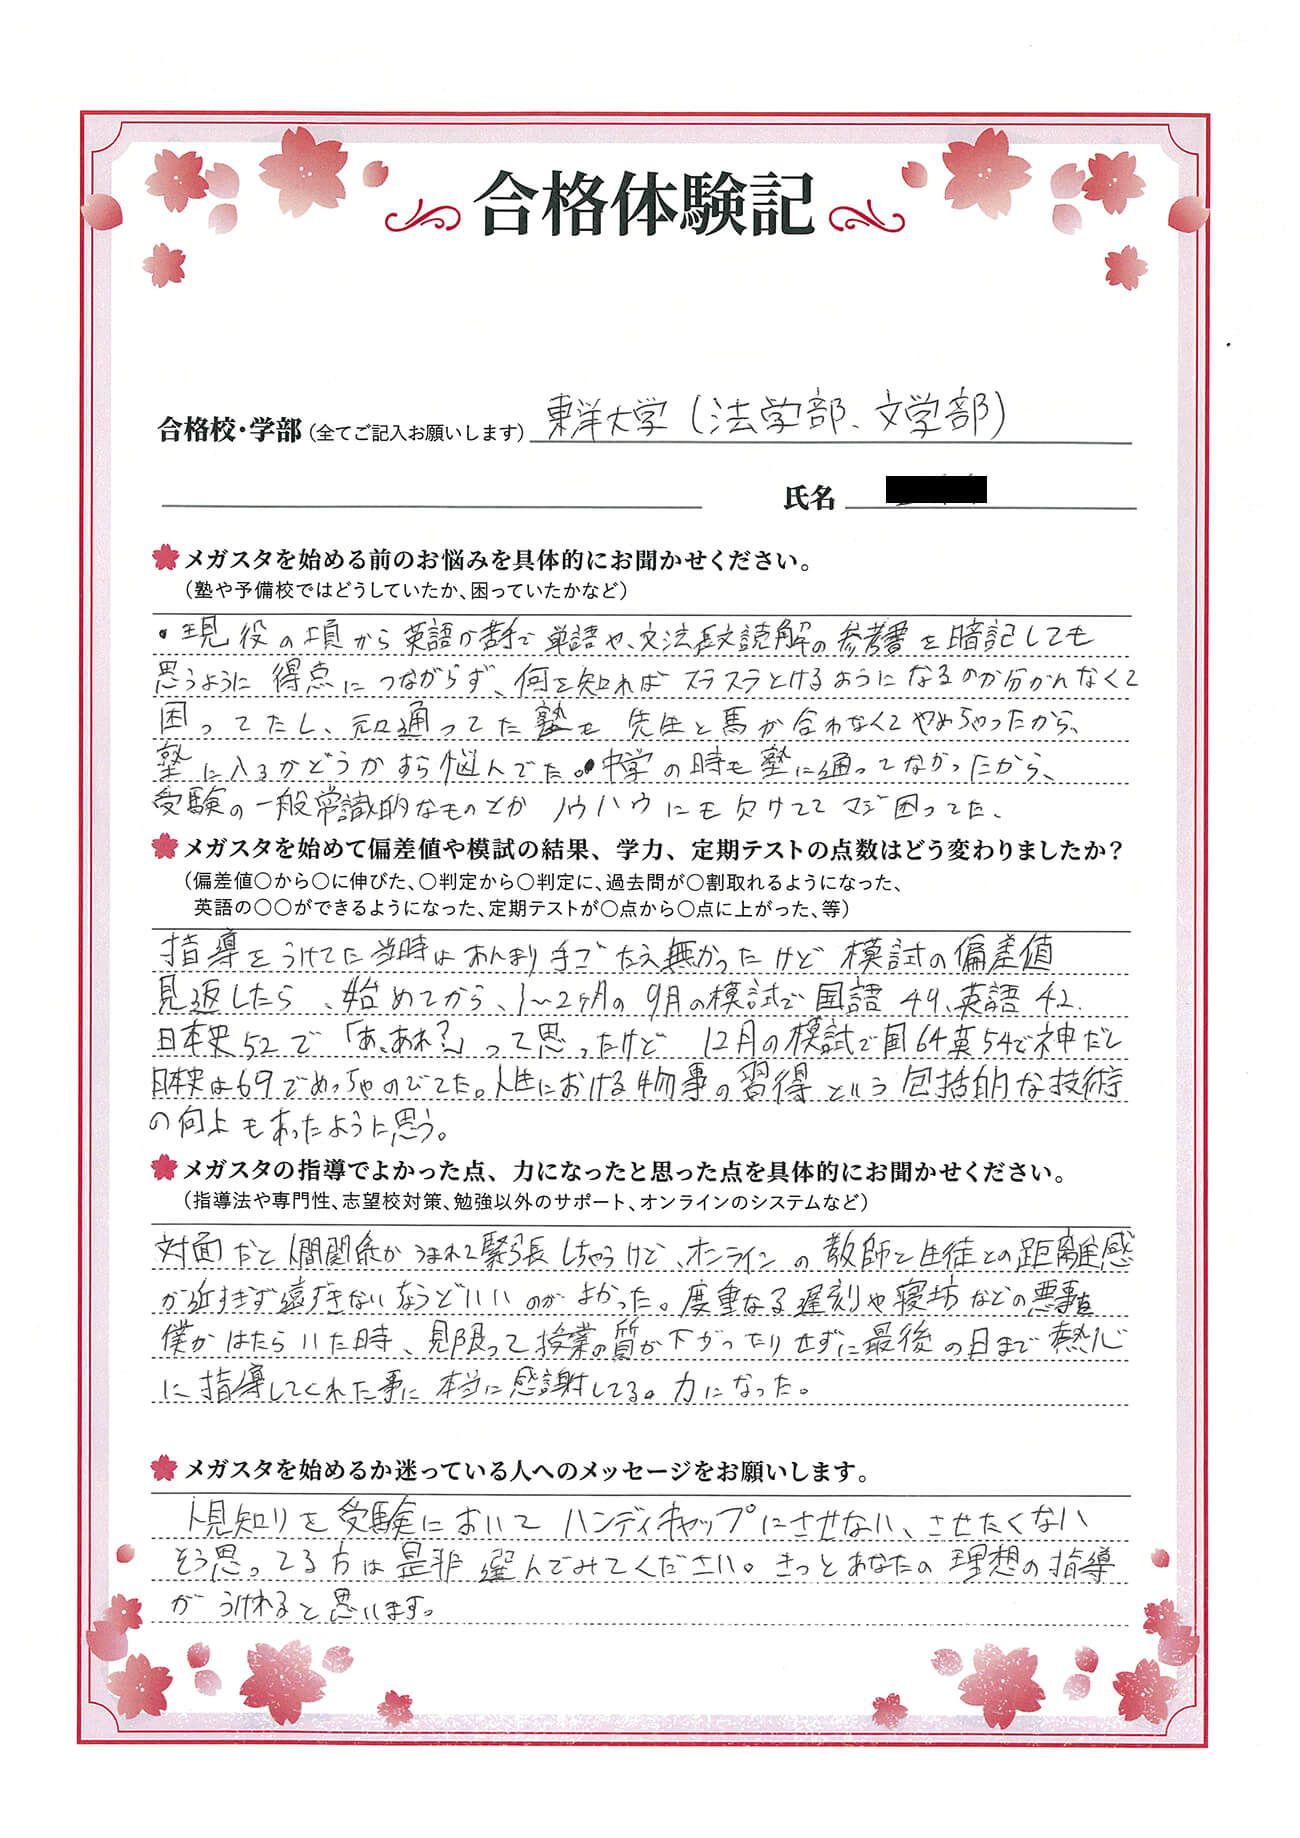 合格体験記
合格校・学部（全てご記入お願いします） 東洋大学（法学部、文学部）
氏名
メガスタを始める前のお悩みを具体的にお聞かせください。
（塾や予備校ではどうしていたか、困っていたかなど）
・現役の頃から英語が苦手で単語や、文法長文読解の参考書を暗記しても
思うように得点につながらず、何を知ればスラスラとけるようになるのか分かんなくて
困ってたし、元々通ってた塾も先生と馬が合わなくてやめちゃったから、
塾に入るかどうかすら悩んでた。・中学の時も塾に通ってなかったから、
受験の一般常識的なものとかノウハウにも欠けててマジ困ってた、
メガスタを始めて偏差値や模試の結果、学力、定期テストの点数はどう変わりましたか？
（偏差値〇から〇に伸びた、〇判定から〇判定に、過去問が〇割取れるようになった、
英語の〇〇ができるようになった、定期テストが〇点から〇点に上がった、等）
指導をうけてた当時はあんまり手ごたえ無かったけど模試の偏差値
見返したら、始めてから、1～2ヶ月の9月の模試で国語49、英語42、
日本史52で「あ、あれ？」って思ったけど 12月の模試で国64英54で神だし
日本史は69でめっちゃのびてた。人生における物事の習得という包括的な技術
の向上もあったように思う。
メガスタの指導でよかった点、力になったと思った点を具体的にお聞かせください。
（指導法や専門性、志望校対策、勉強以外のサポート、オンラインのシステムなど）
対面だと人間関係がうまれて緊張しちゃうけど、オンラインの教師と生徒との距離感
が近すぎず遠すぎないちょうどいいのがよかった。度重なる遅刻や寝坊などの悪事を
僕がはたらいた時、見限って授業の質が下がったりせずに最後の日まで熱心
に指導してくれた事に本当に感謝してる。力になった。
メガスタを始めるか迷っている人へのメッセージをお願いします。
人見知りを受験においてハンディキャップにさせない、させたくない
そう思ってる方は是非選んでみてください。きっとあなたの理想の指導
がうけれると思います。